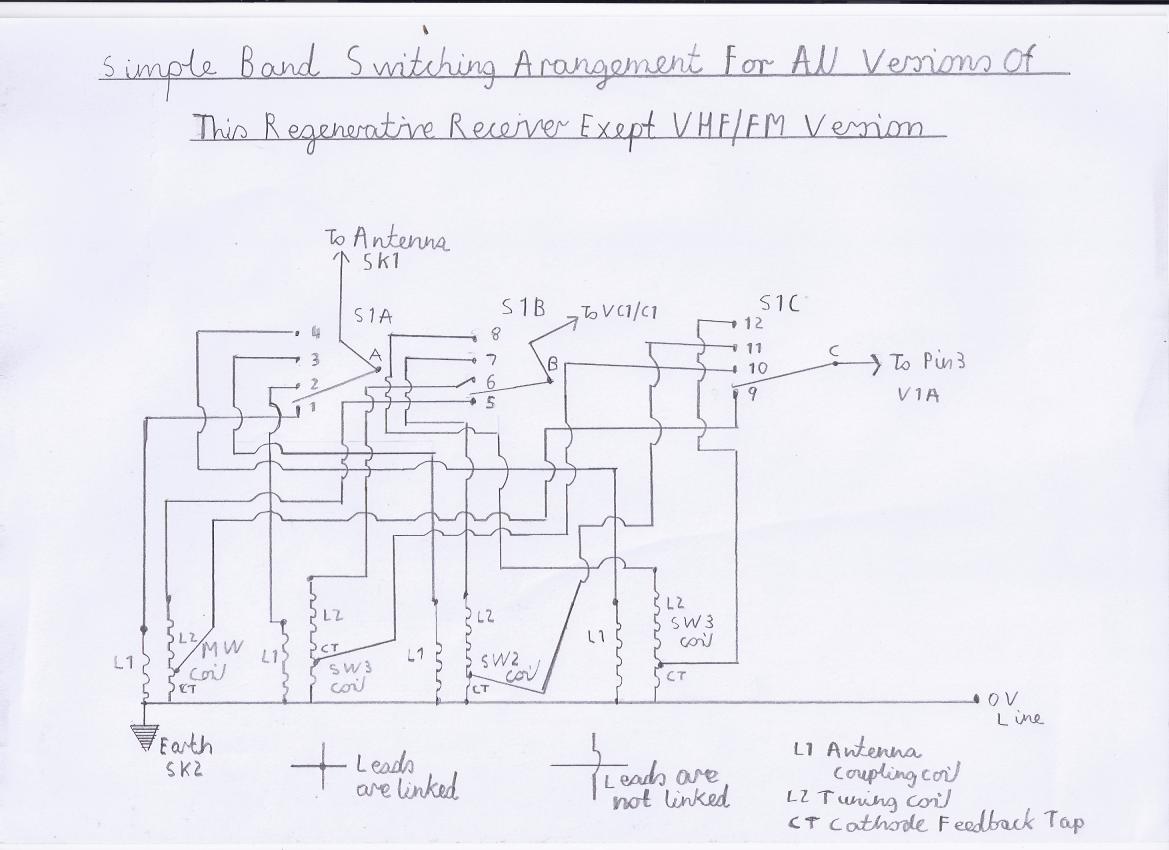 Simple Band Switching Arangement For All Versions Of
This Regenerative Receiver Exept VHF/FM Version
To Antenna
SK1
S1A
S1B
To VC1/C1
S1C
4
3
2
1
A
8
7
6
5
B
12
11
10
9
C
To Pin3
V1A
L1
L2
MW
coil
CT
L1
L2
CT
SW3
coil
L1
L2
SW2
coil
CT
L1
L2
SW3
coil
CT
0V
Line
Earth
SK2
Leads
are linked
Leads are
not linked
L1 Antenna
coupling coil
L2 Tuning coil
CT Cathode Feedback Tap